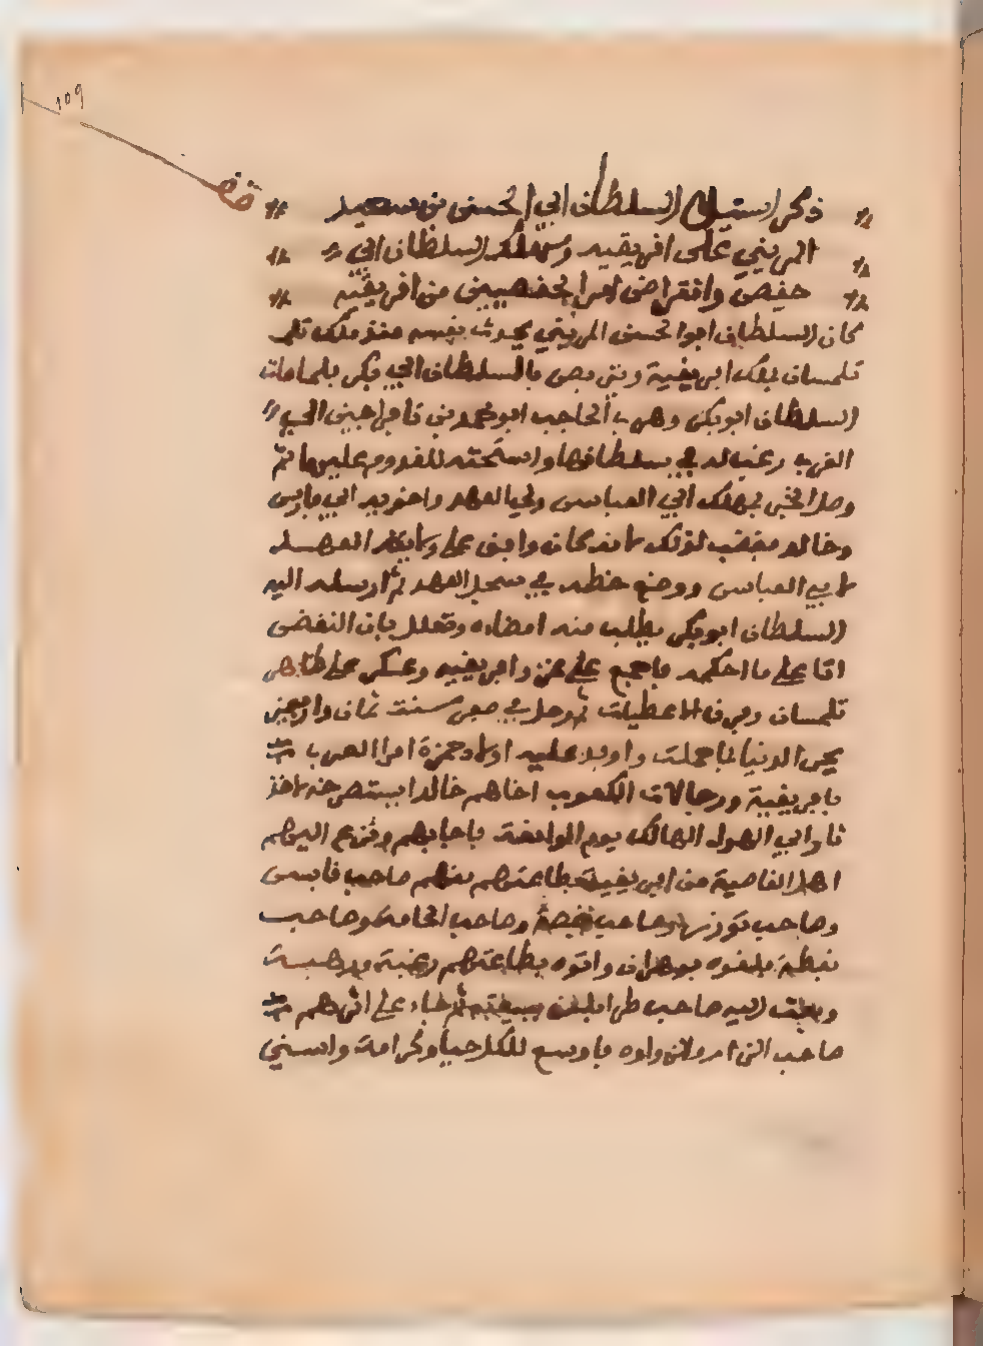 109
قف
ذكر استيلا السلطان ابي الحسن بن سعيد
المريني على افريقيه ومهلك السلطان ابي
حفص وانقراض امرا الحفصيين من افريقيه
كان السلطان ابوا الحسن المريني يحدث نفسه منذ ملك تلمـ
تلمسان بملك افريقية ويتربص بالسلطان ابي بكر فلما مات
السلطان ابوبكر وهرب الحاجب ابو محمد بن تافراجين الى
الغرب رغب له في سلطانها واستحثه للقدوم عليها ثم
وصل الخبر بمهلك ابي العباس ولي العهد واخويه ابي فارس
وخالد فغضب لذلك لانه كان وافق على ولاية العهد
لابي العباس ووضع خطه في سجل العهد لما ارسله اليه
السلطان ابوبكر يطلب منه امضاءه وتعلل بان النقض
اتا على ما احكمه فاجمع على غزو افريقيه وعسكر على ظاهر
تلمسان وفرق الاعطيات ثم رحل في صفر سنة ثمان واربعين
يجر الدنيا بما حملت واوفد عليه اولاد حمزة امرا العرب
بافريقية ورجالات الكعوب اخاهم خالدا يستصرخه لاخذ
ثار ابي الهول الهالك يوم الواقعة فاجابهم ونزع اليهم
اهل القاصية من افريقية بطاعتهم منهم صاحب قابس
وصاحب توزر وصاحب قفصة وصاحب الحامة وصاحب
نفطة فلقوه بوهران واتوه بطاعتهم رغبة ورهبة
وبعث اليه صاحب طرابلس ببيعته ثم جاء على اثرهم
صاحب الزاب فاوسع للكل حبا وكرامة واسنى